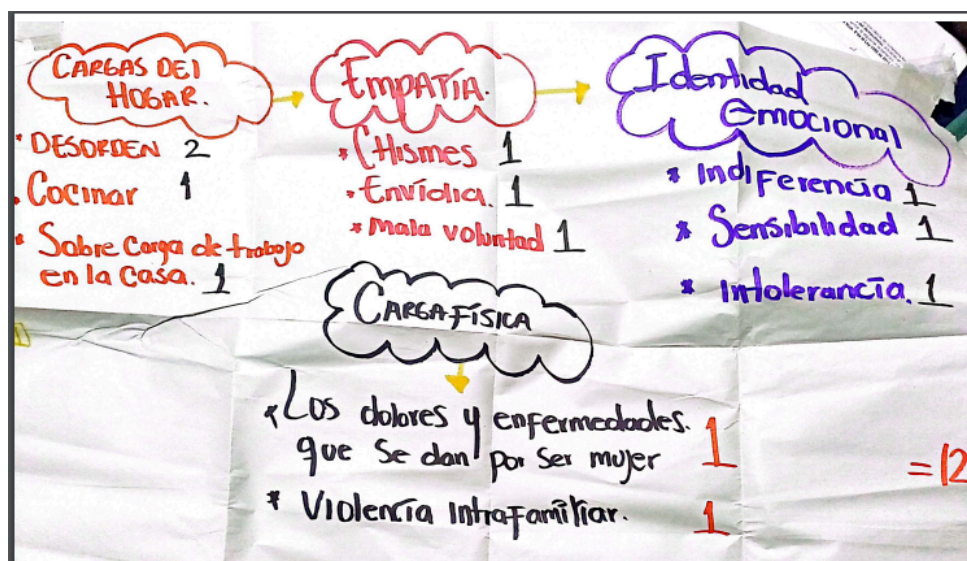 CARGAS DEl
HOGAR.
* DESORDEN 2
. Cocinar 1
* Sobre carga de trabajo
en la casa. 1
EMPATÍA.
* CHismes 1
* Envídia. 1
* mala voluntad 1
Identidad
Emocional
* IndiFerencia 1
* Sensibilidad 1
* Intolerancia. 1
CARGA FÍSICA
* Los dolores y enfermedades.
que se dan por ser mujer 1
* Violencia Intrafamiliar. 1
= 12